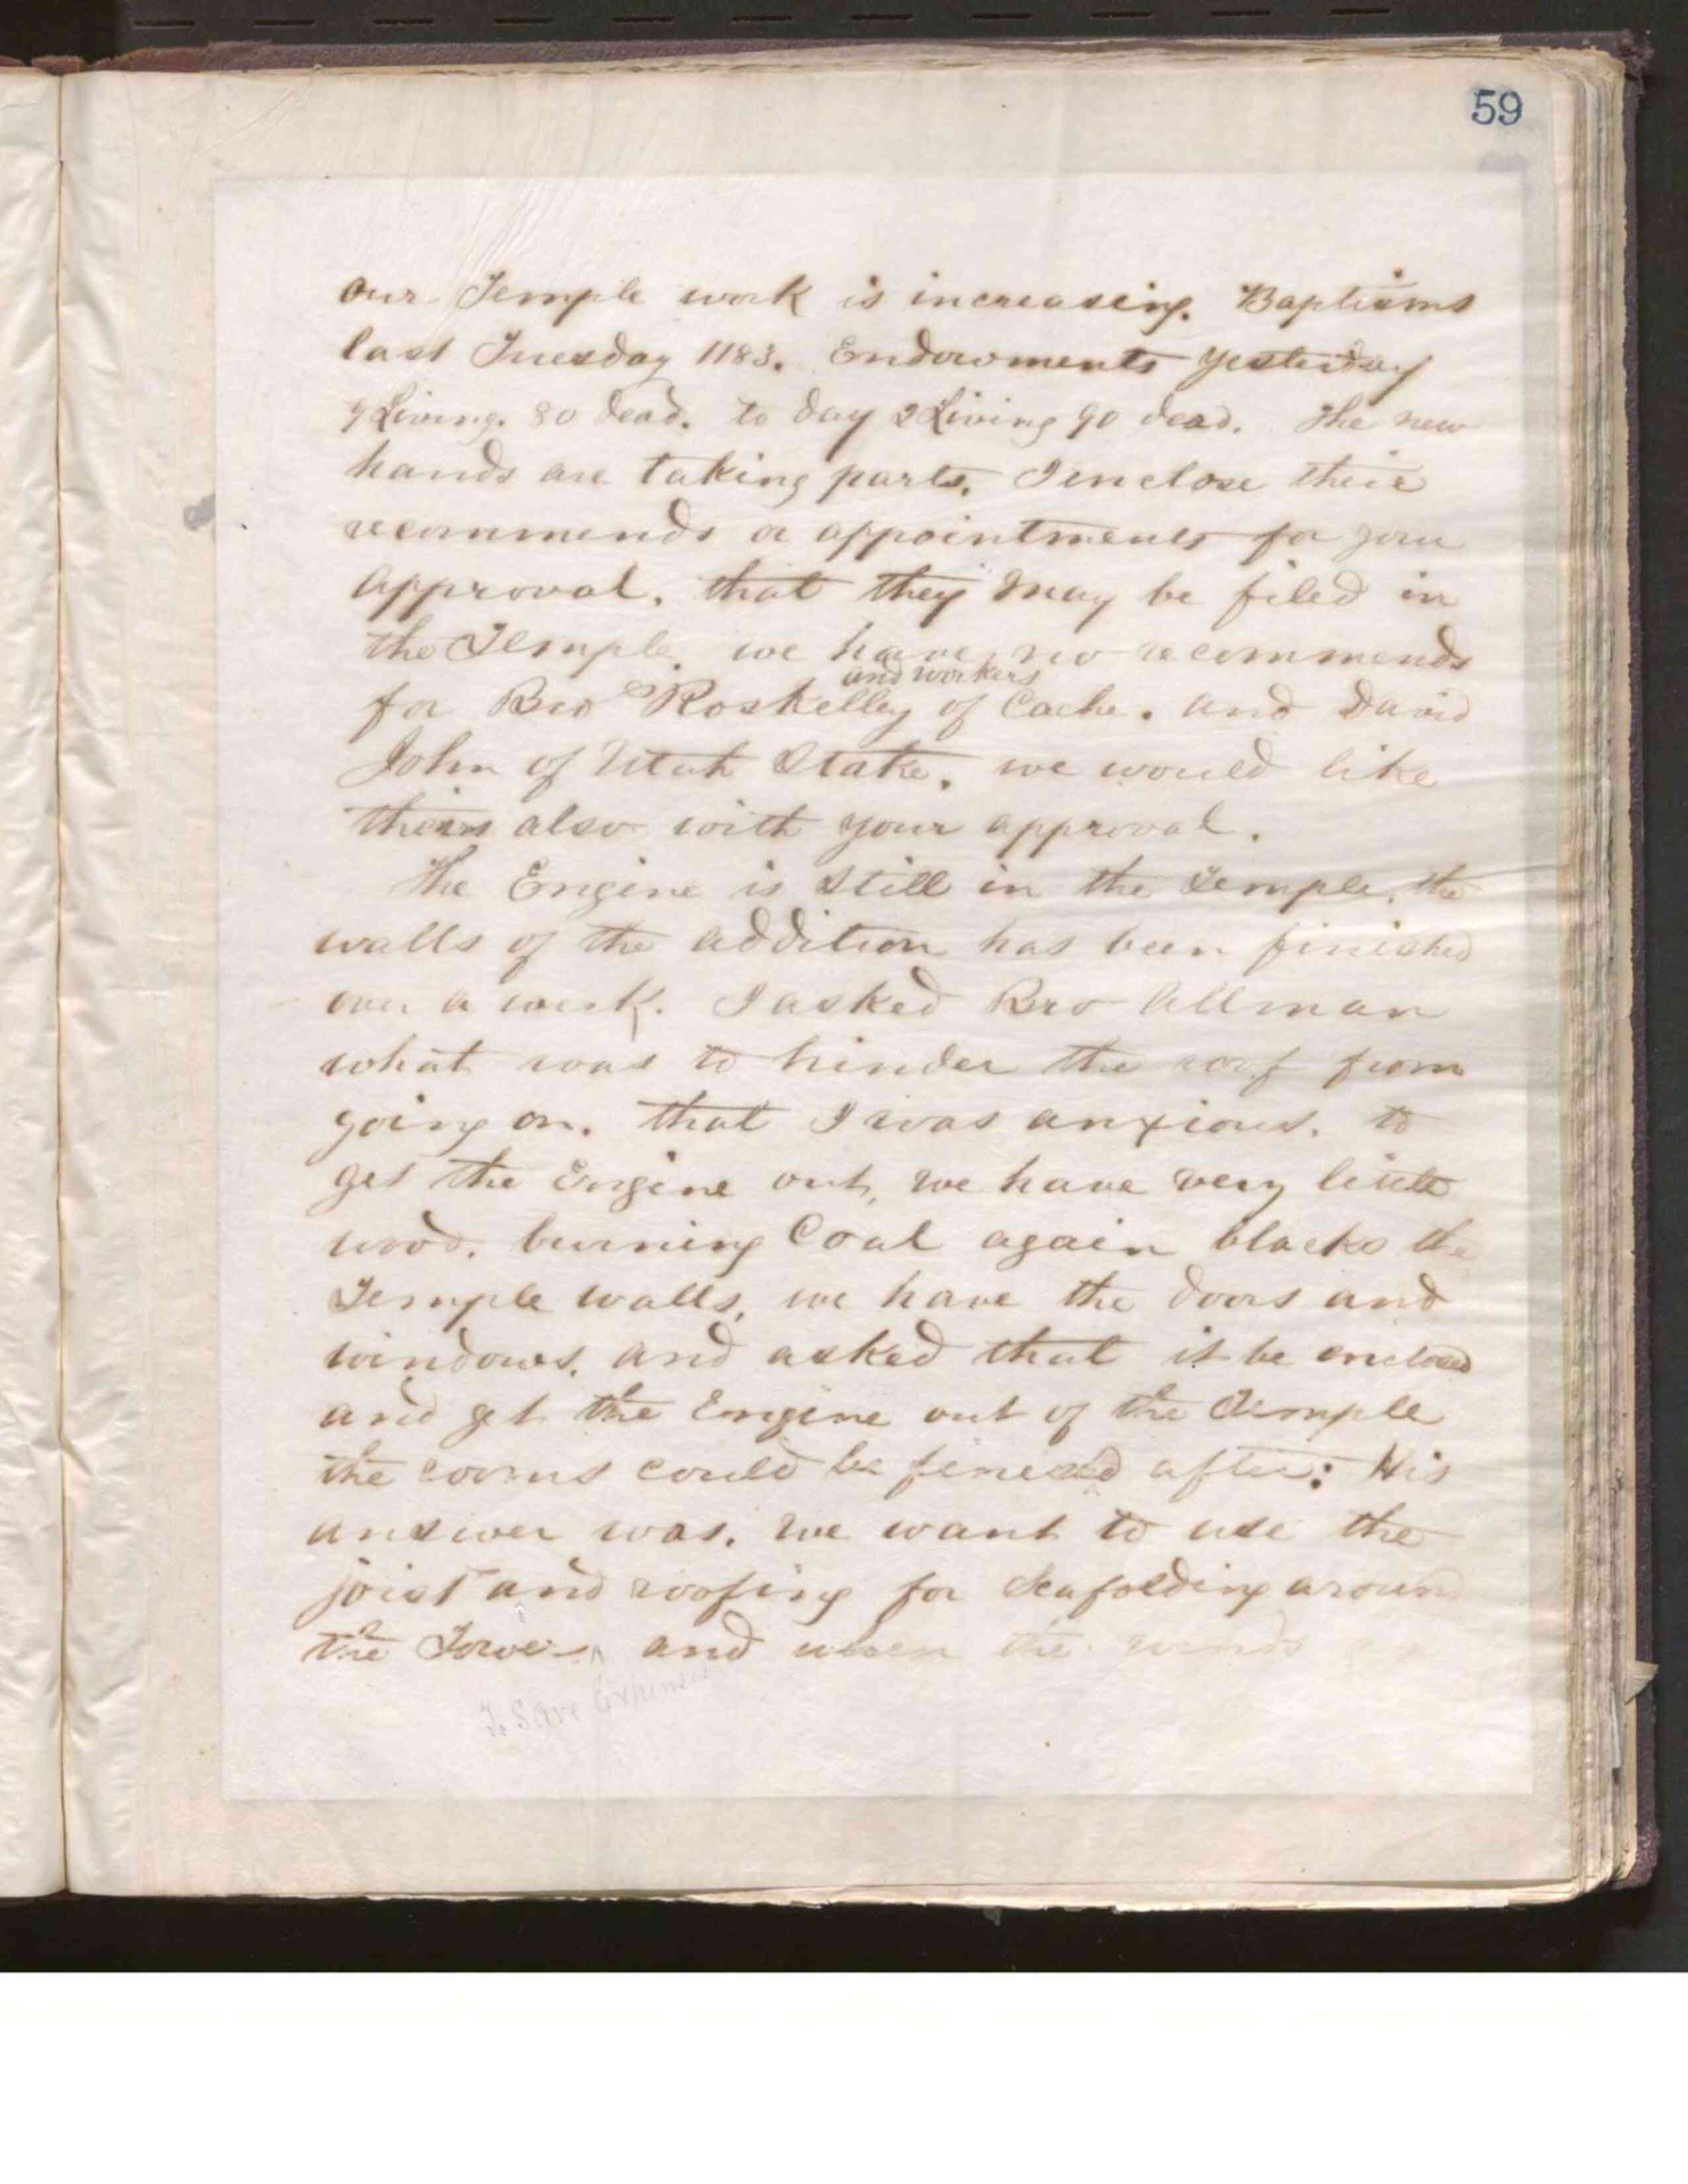 59
our Temple work is increasing. Baptisms
last Tuesday 1183. Endowments yesterday
9 Living. 80 dead. to day 2 Living 90 dead. The new
hands are taking parts, I enclose their
recommends or appointments for your
approval. that they may be filed in
the Temple. we have no recommends
and workers
for Bro Roskelley of Cache. and David
John of Utah Stake. we would like
theirs also with your approval.
The Engine is still in the Temple, the
walls of the addition has been finished
over a week. I asked Bro Allman
what was to hinder the roof from
going on. that I was anxious. to
get the Engine out, we have very little
wood. burning Coal again blacks the
Temple walls, we have the doors and
windows. and asked that it be enclosed
and get the Engine out of the Temple
the rooms could be after: His
answer was. we want to use the
joist and roofing for scafolding around
the Tower and when the winds
To Save Expenses